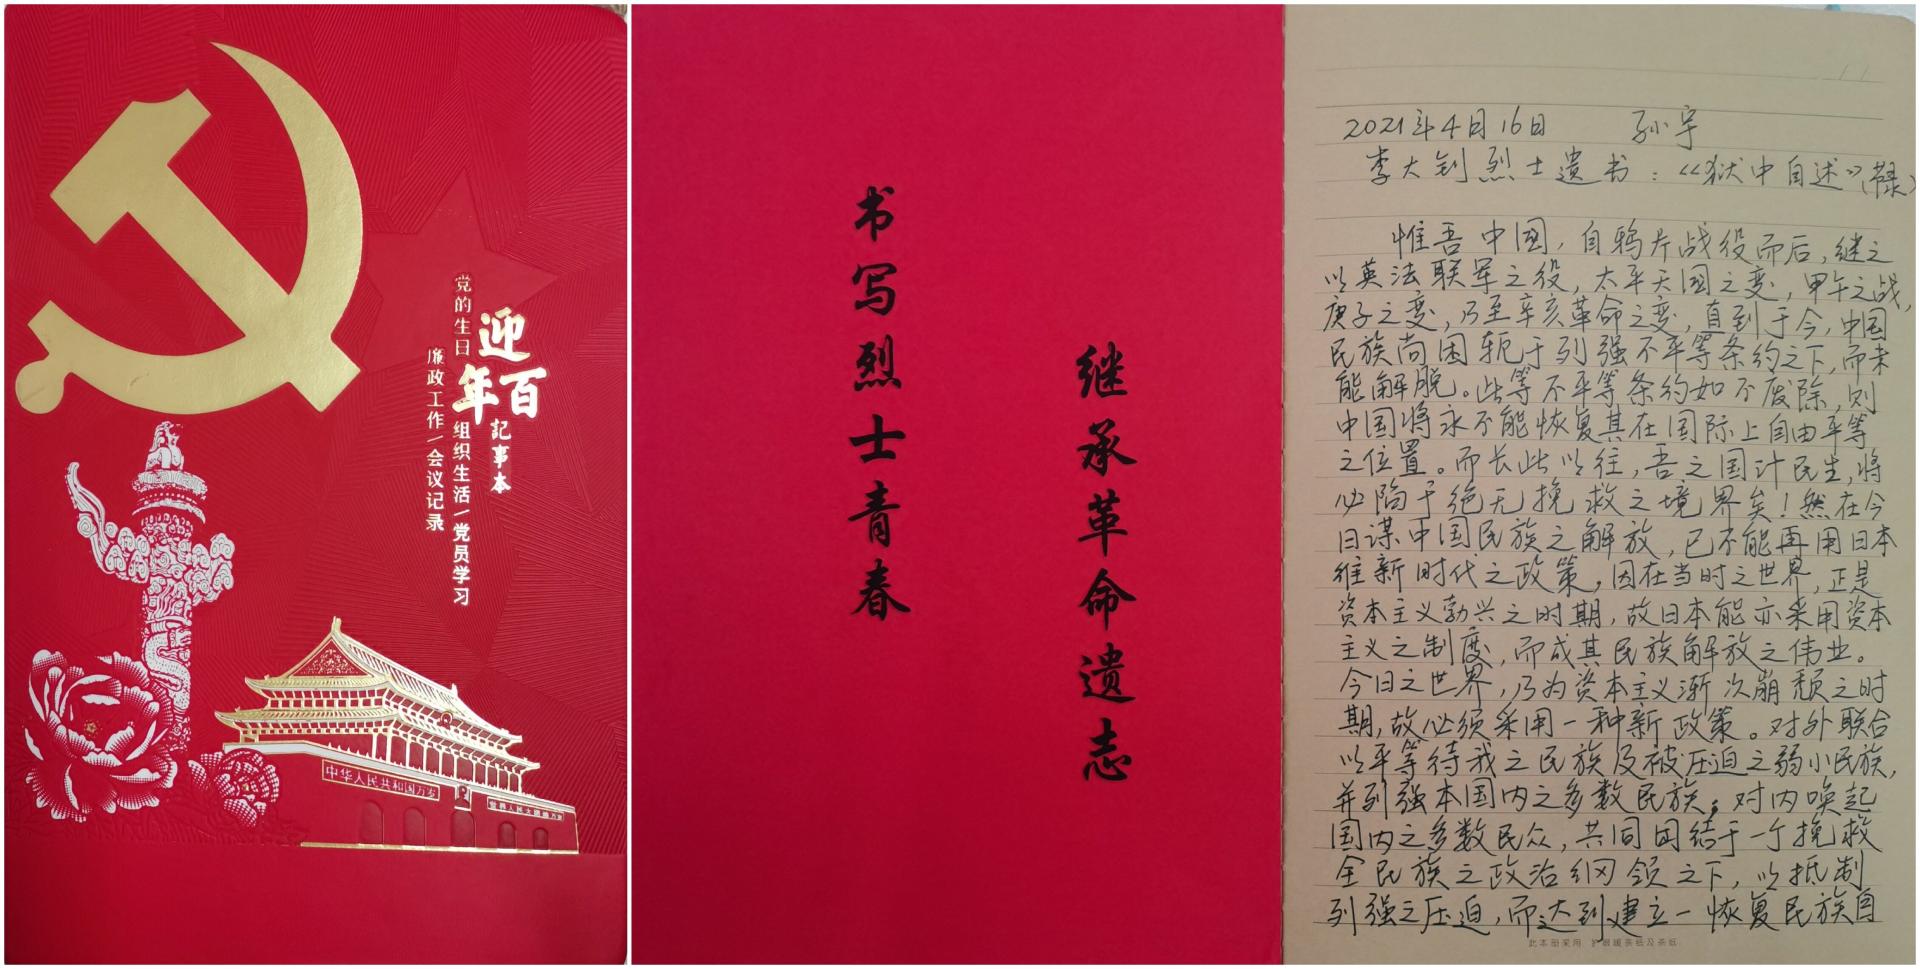 迎百年
記事本
党的生日
组织生活/党员学习
廉政工作/会议记录
中华人民共和国万岁
世界人民大团结万岁
书写烈士青春
继承革命遗志
2021年4月16日 孙宇
李大钊烈士遗书：《狱中自述》(节录)
惟吾中国，自鸦片战役而后，继之
以英法联军之役，太平天国之变，甲午之战，
庚子之变，乃至辛亥革命之变，直到于今，中国
民族尚困轭于列强不平等条约之下，而未
能解脱。此等不平等条约如不废除，则
中国将永不能恢复其在国际上自由平等
之位置。而长此以往，吾之国计民生，将
必陷于绝无挽救之境界矣！然在今
日谋中国民族之解放，已不能再用日本
维新时代之政策，因在当时之世界，正是
资本主义勃兴之时期，故日本能亦采用资本
主义之制度，而成其民族解放之伟业。
今日之世界，乃为资本主义渐次崩颓之时
期，故必须采用一种新政策。对外联合
以平等待我之民族及被压迫之弱小民族，
并列强本国内之多数民族；对内唤起
国内之多数民众，共同团结于一个挽救
全民族之政治纲领之下，以抵制
列强之压迫，而达到建立一恢复民族自